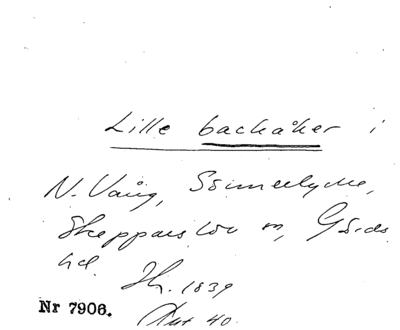 Lille backåker i
N. Vång, Sömmelycke,
Skeppars löv sn, Gärds
hd. Jh. 1839
Nr 7906.
Akt 40.